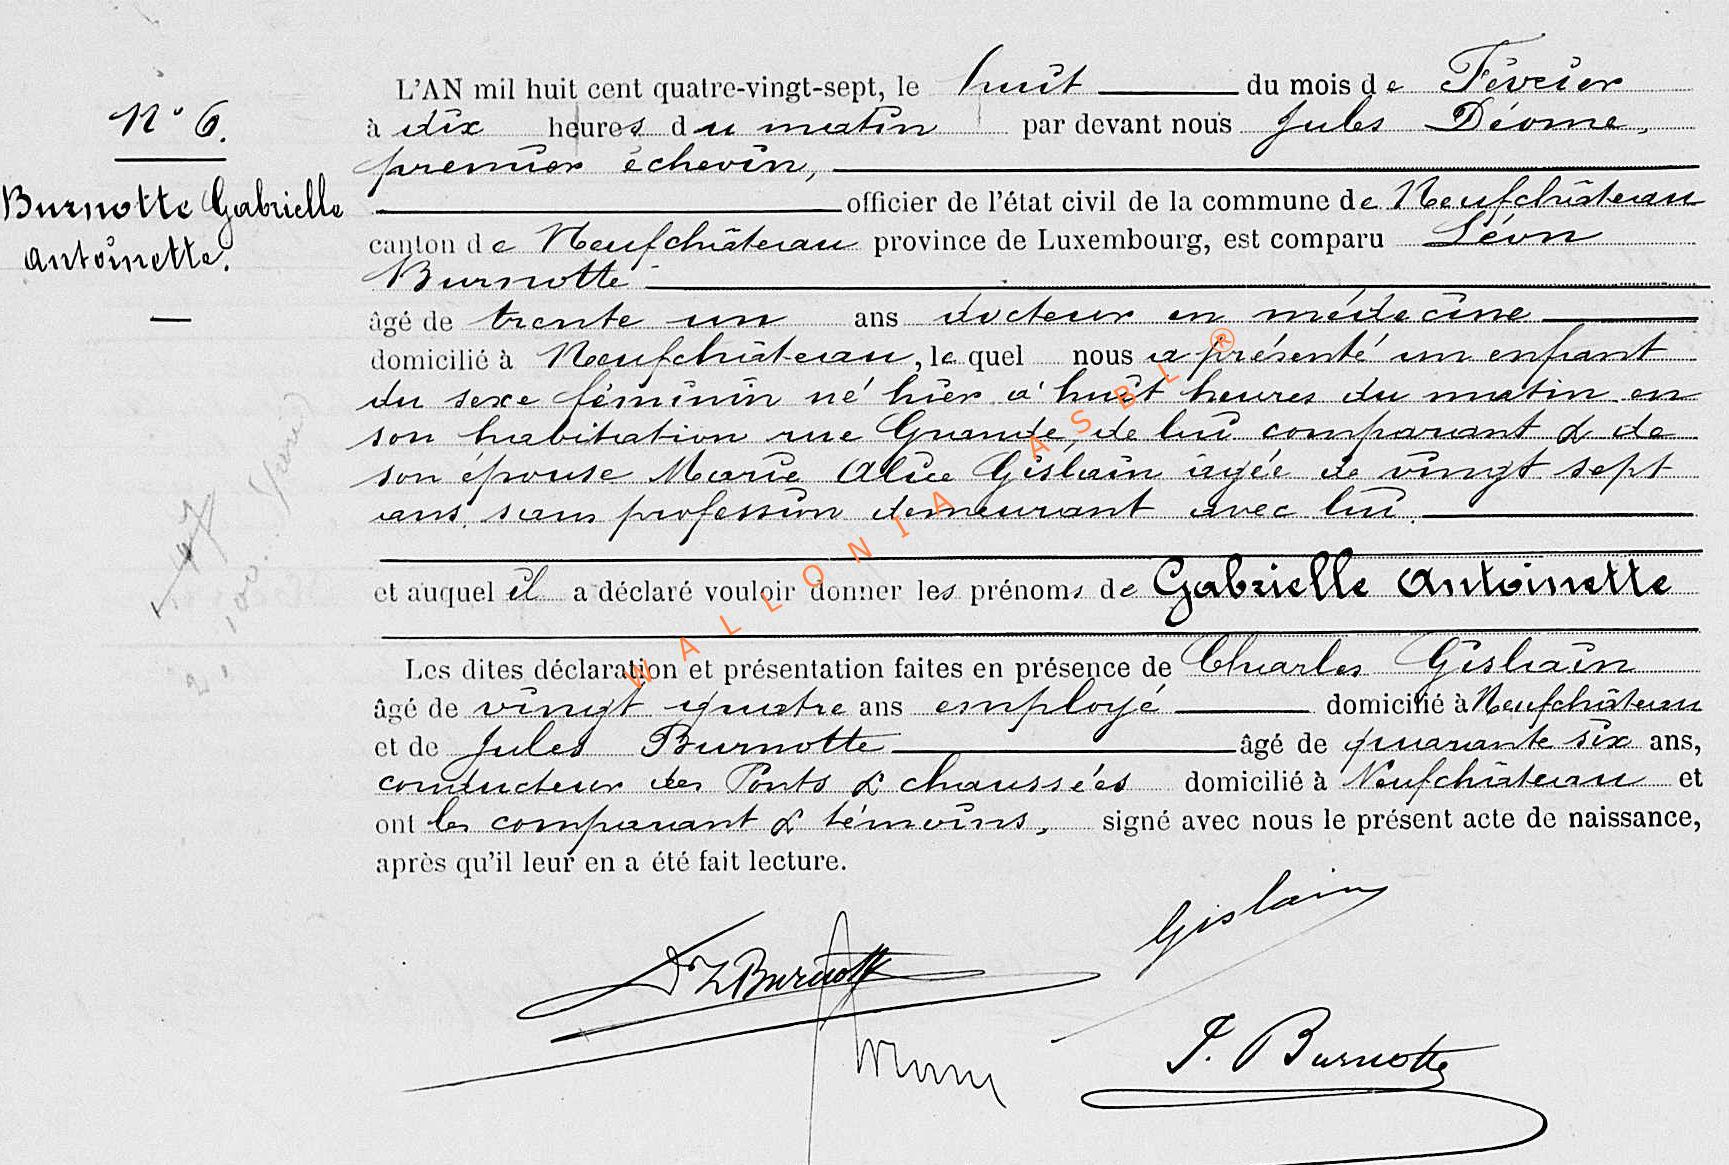 L'AN mil huit cent quatre-vingt-sept, le huit du mois de Févrièr
N° 6. à dix heures du matin par devant nous Jules Déome,
premier échevin,
Burnotte Gabrielle officier de l'état civil de la commune de Neufchâteau
Antoinette. canton de Neufchâteau province de Luxembourg, est comparu Léon
Burnotte
âgé de trente un ans docteur en médecine
domicilié à Neufchâteau, le quel nous a présenté un enfant
du sexe féminin né hier à huit heures du matin en
son habitation rue Grande, de lui comparant & de
son épouse Marie Alice Gislain agée de vingt sept
ans, sans profession demeurant avec lui.
et auquel il a déclaré vouloir donner les prénoms de Gabrielle Antoinette
Les dites déclaration et présentation faites en présence de Charles Gislain
âgé de vingt quatre ans employé domicilié à Neufchâteau
et de Jules Burnotte âgé de quarante six ans,
conducteur des Ponts & chaussées domicilié à Neufchâteau et
ont les comparant & témoins, signé avec nous le présent acte de naissance,
après qu'il leur en a été fait lecture.
WALLONIA ASBL ®
Gislain
Dr L Burnotte
J. Burnotte